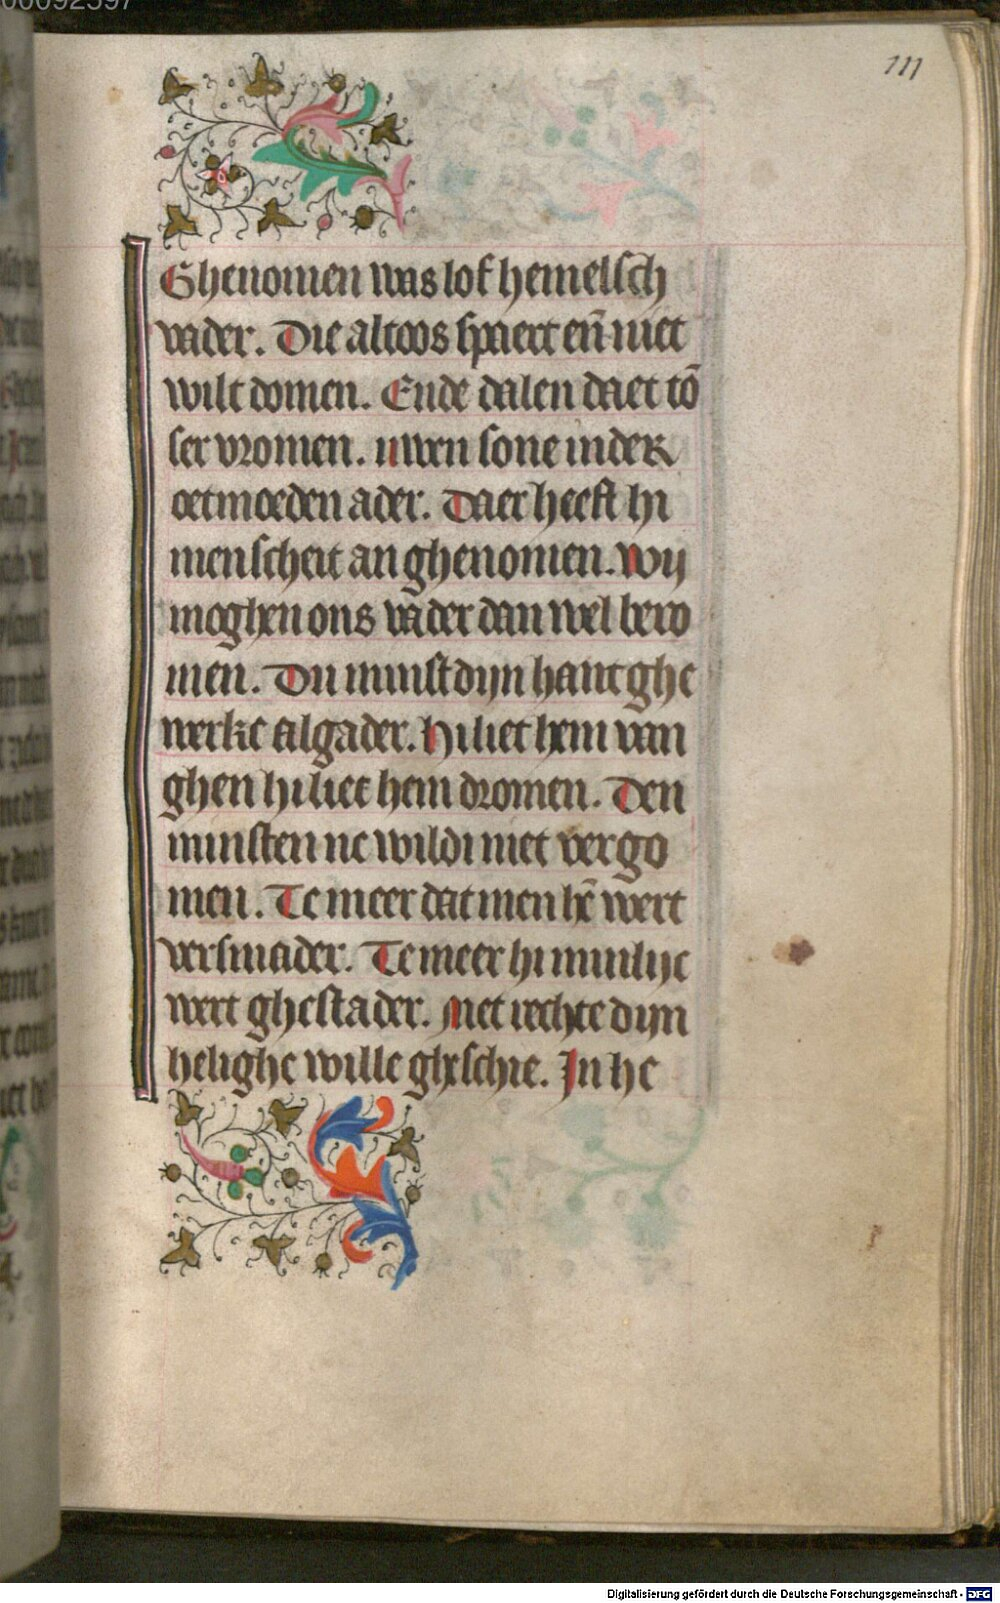 00092397
111
Ghenomen was lof hemelsch
vader. Die altoos spaert en̄ niet
wilt domen. Ende dalen daet tō
ser vromen. uwen sone in der
oetmoeden ader. Daer heeft hi
menscheit an ghenomen. Wij
moghen ons vader dan wel bero
men. Du minst dijn hant ghe
werke algader. Hi liet hem van
ghen hi liet hem dromen. Den
minsten ne wildi niet vergo
men. Te meer dat men hē wert
versmader. Te meer hi minlijc
wert ghestader. Met rechte dijn
helighe wille gheschie. In he
Digitalisierung gefördert durch die Deutsche Forschungsgemeinschaft - DFG